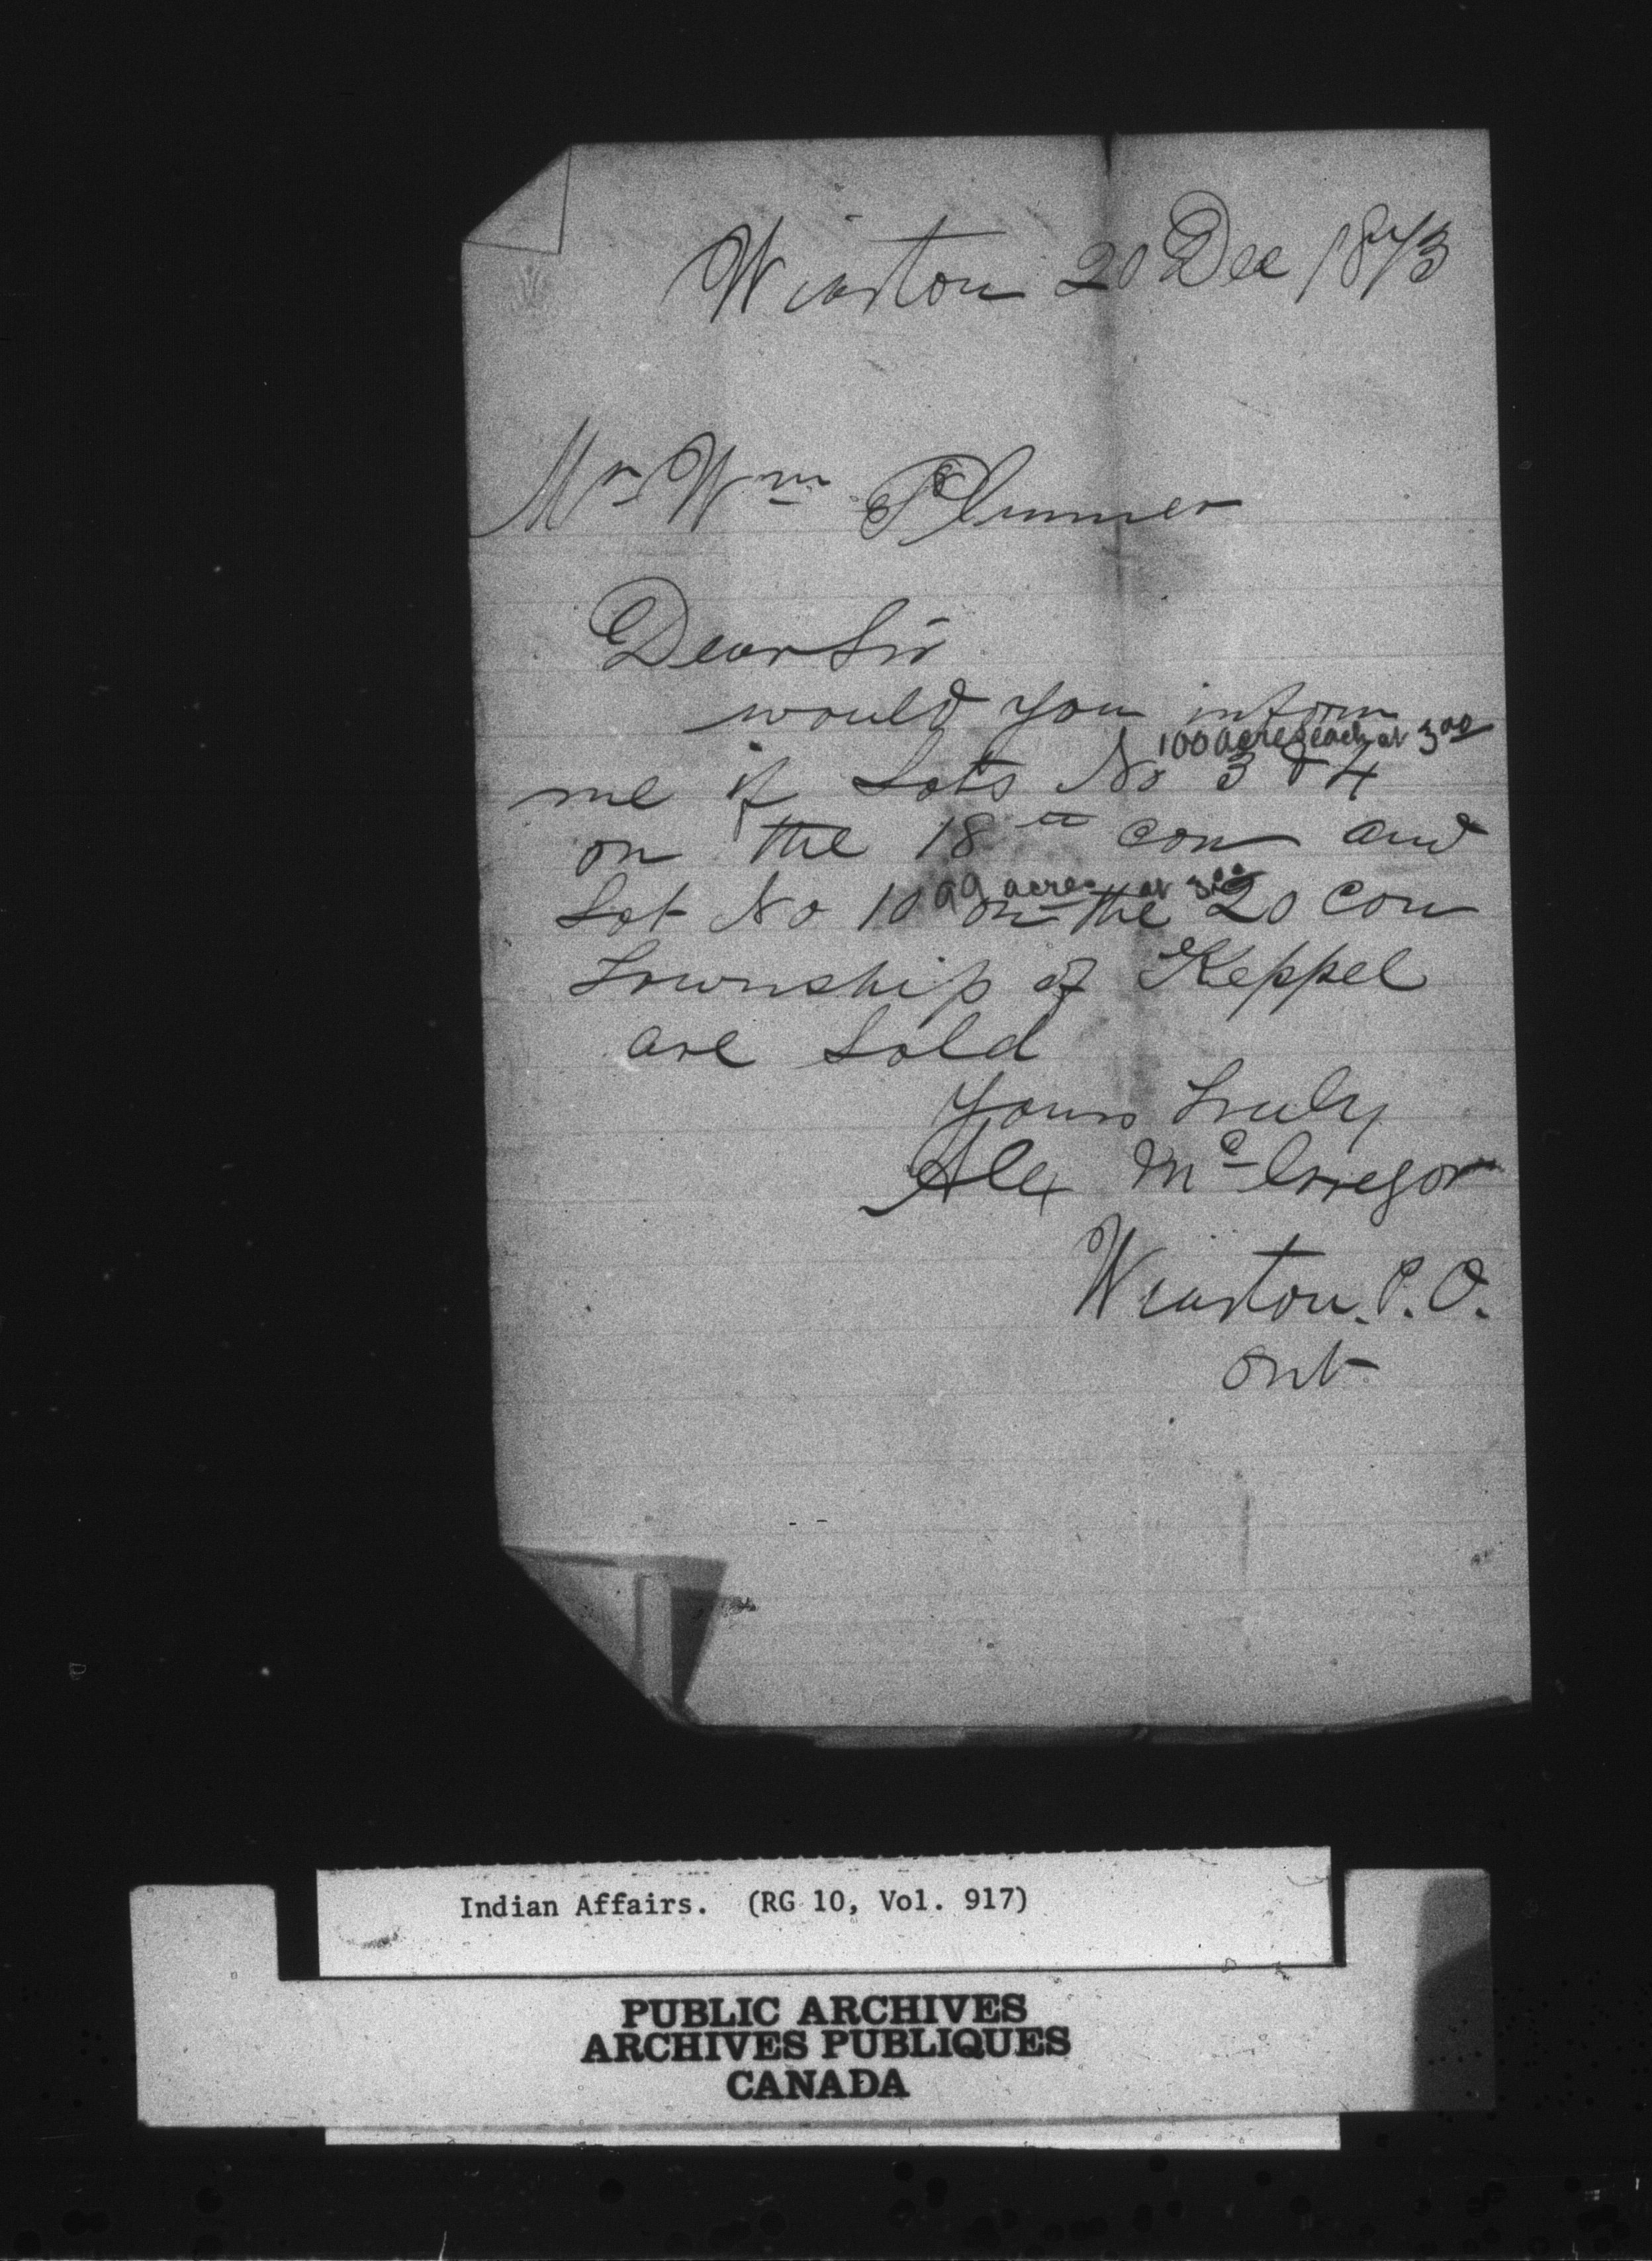 Wiarton 20 Dec 1873
Mr Wm Plummer
Dear Sir
would you inform
100 acres each at 3.00
me if Lots No 3 & 4
on the 18th con and
99 acres at 3.00
Lot No 10 on the 20 Con
Township of Keppel
are Sold
Yours Truly
Alex McGregor
Wiarton. P. O.
Ont
Indian Affairs. (RG 10, Vol. 917)
PUBLIC ARCHIVES
ARCHIVES PUBLIQUES
CANADA